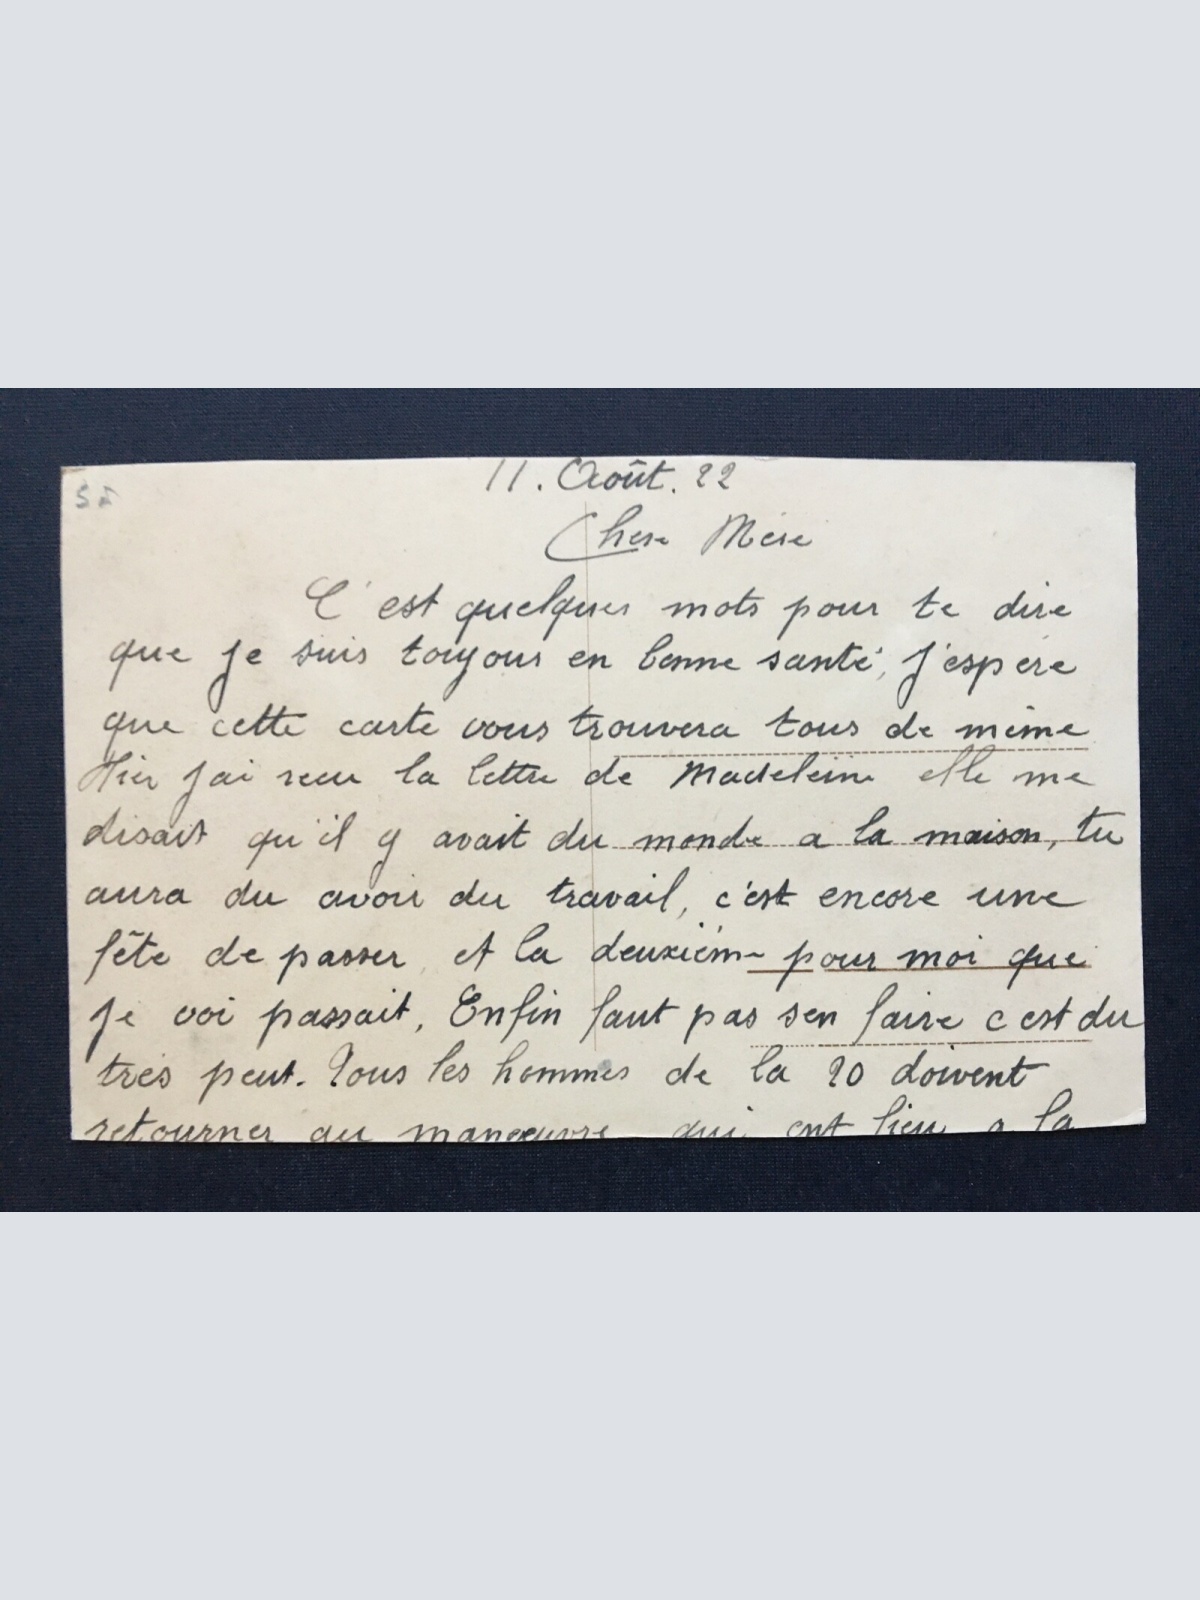 11. Août. 22
Chere Mère
C'est quelques mots pour te dire
que je suis toujours en bonne santé, j'espère
que cette carte vous trouvera tous de même
Hier j'ai recu la lettre de Madeleine elle me
disait qu'il y avait du monde a la maison, tu
aura du avoir du travail, c'est encore une
fête de passer, et la deuxièm pour moi que
je voi passait, Enfin faut pas sen faire c est du
très peut. Tous les hommes de la 20 doivent
retourner au manœuvre qui ont lieu a la